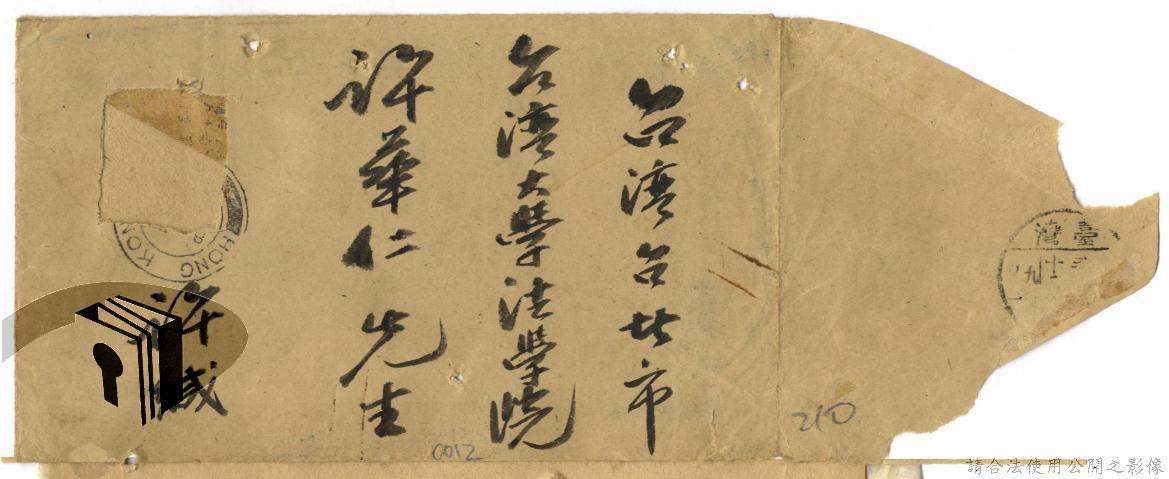 台湾台北市
台湾大學法學院
許華仁先生
許緘
HONG KON
臺灣
210
0012
請合法使用公開之影像